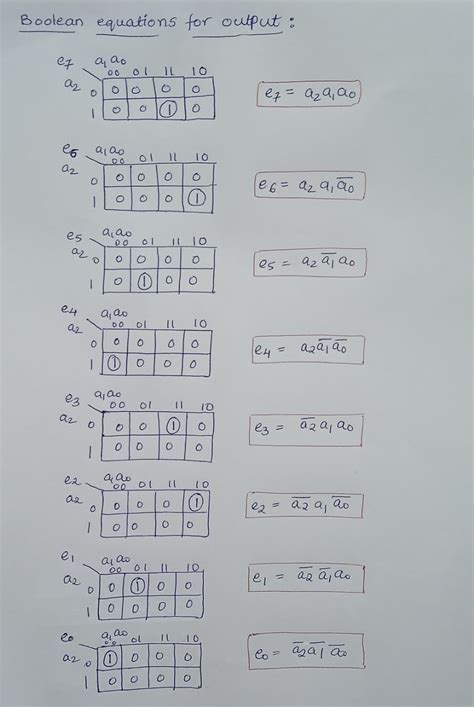 Boolean equations for output :
e7 a1a0
00 01 11 10
a2 0 0 0 0 0
1 0 0 1 0
e7 = a2 a1 a0
e6 a1a0
00 01 11 10
a2 0 0 0 0 0
1 0 0 0 1
e6 = a2 a1 a̅0
e5 a1a0
00 01 11 10
a2 0 0 0 0 0
1 0 1 0 0
e5 = a2 a̅1 a0
e4 a1a0
00 01 11 10
a2 0 0 0 0 0
1 1 0 0 0
e4 = a2 a̅1 a̅0
e3 a1a0
00 01 11 10
a2 0 0 0 1 0
1 0 0 0 0
e3 = a̅2 a1 a0
e2 a1a0
00 01 11 10
a2 0 0 0 0 1
1 0 0 0 0
e2 = a̅2 a1 a̅0
e1 a1a0
00 01 11 10
a2 0 0 1 0 0
1 0 0 0 0
e1 = a̅2 a̅1 a0
e0 a1a0
00 01 11 10
a2 0 1 0 0 0
1 0 0 0 0
e0 = a̅2 a̅1 a̅0